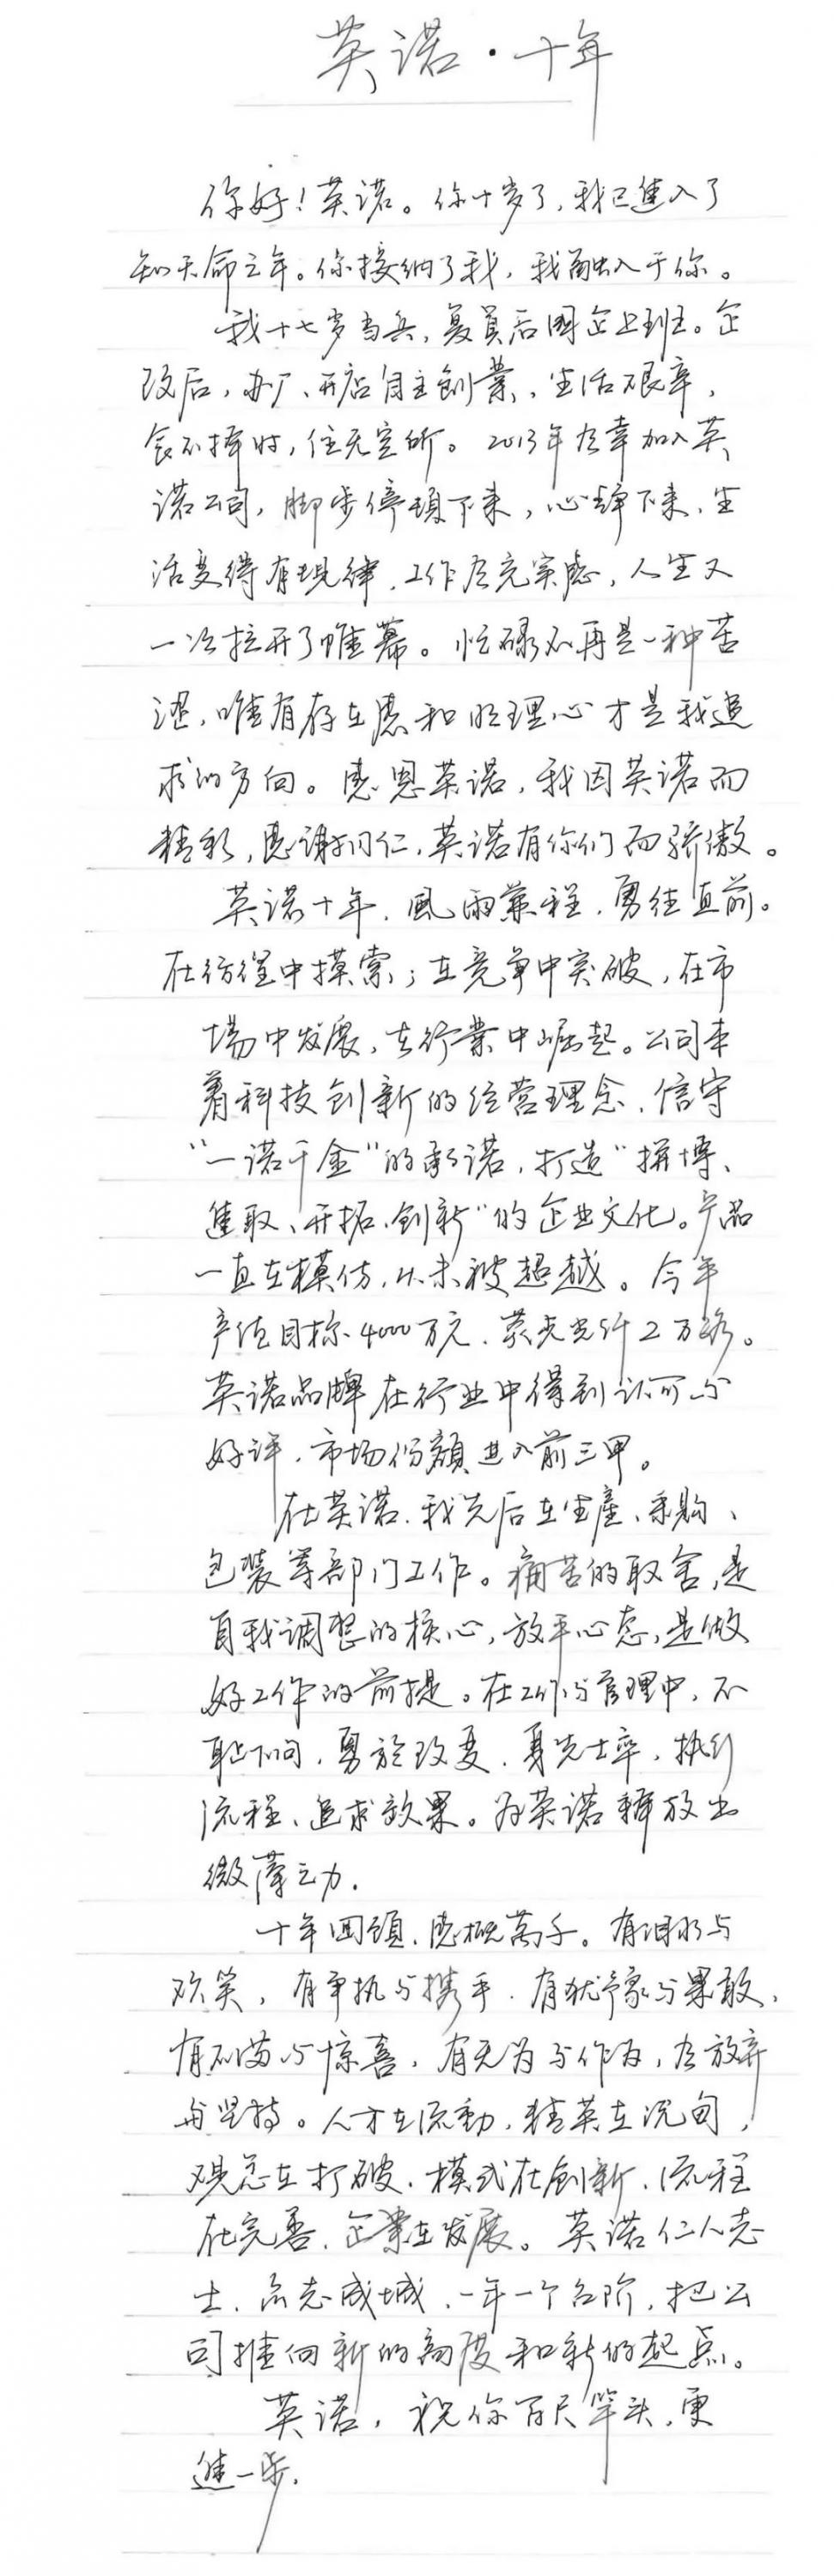 英诺·十年
你好！英诺。你十岁了，我已進入了
知天命之年。你接纳了我，我融入于你。
我十七岁当兵，复员后国企上班。企
改后，办厂、开店自主創業，生活艰辛，
食不择时，住无定所。2013年有幸加入英
诺公司，脚步停頓下来，心静下来，生
活变得有規律，工作有充实感，人生又
一次拉开了帷幕。忙碌不再是一种苦
涩，唯有存在感和的理心才是我追
求的方向。感恩英诺，我因英诺而
精彩，感谢同仁，英诺有你们而骄傲。
英诺十年，風雨兼程，勇往直前。
在彷徨中摸索；在竞争中突破，在市
場中发展，在行業中崛起。公司本
着科技创新的经营理念，信守
“一诺千金”的承诺，打造“拼博、
進取、开拓、创新”的企业文化。产品
一直在模仿，从未被超越。今年
产值目标4000万元，荧光光纤2万路。
英诺品牌在行业中得到认可与
好评，市场份額进入前三甲。
在英诺，我先后在生產、采购、
包装等部门工作。痛苦的取舍，是
自我调整的核心，放平心态，是做
好工作的前提。在工作与管理中，不
耻下问，勇於改变，身先士卒，执行
流程、追求效果。为英诺释放出
微薄之力。
十年回頭，感概萬千。有泪水与
欢笑，有争执与携手，有犹豫与果敢，
有不满与惊喜，有无为与作为，有放弃
与坚持。人才在流動，精英在沉甸，
观念在打破，模式在創新，流程
在完善，企業在发展。英诺仁人志
士，众志成城，一年一个台阶，把公
司推向新的高度和新的起点。
英诺，祝你百尺竿头，更
進一步。